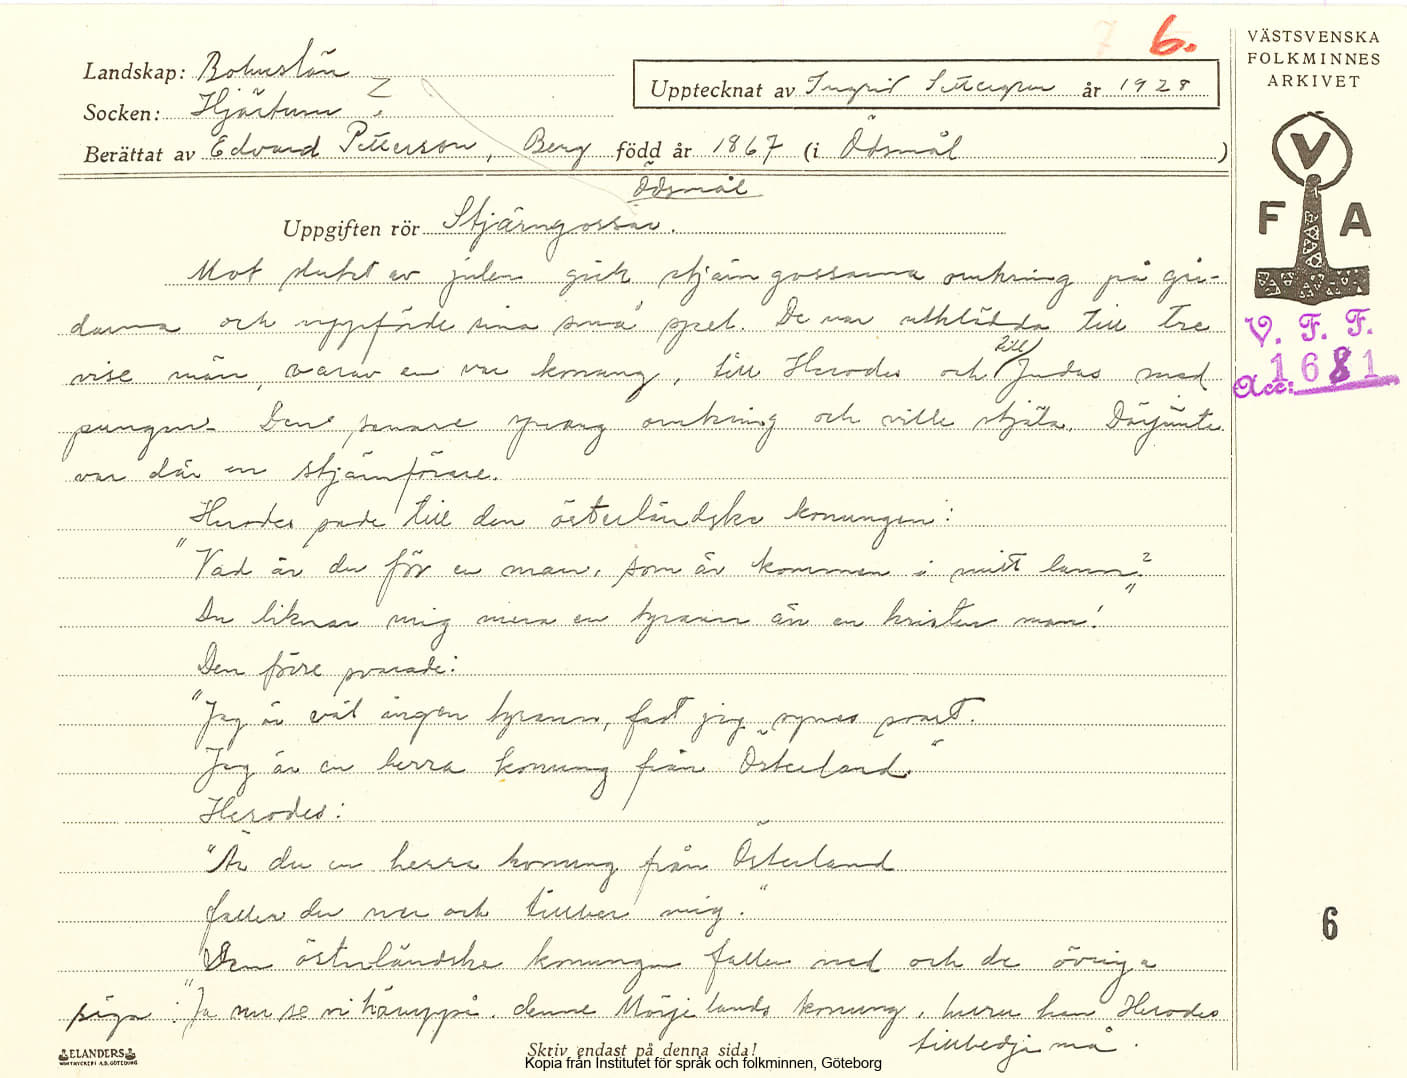 7 6.
VÄSTSVENSKA
FOLKMINNES
ARKIVET
Landskap: Bohuslän
Upptecknat av Ingrid Settergren år 1928
Socken: Hjärtum
Berättat av Edvard Petterson, Berg född år 1867 (i Ödsmål )
Ödsmål
Uppgiften rör Stjärngossar.
V
F A
Mot slutet av julen gick stjärngossarna omkring på går-
darna och uppförde sina små spel. De var utklädda till tre
V. F. F.
vise män, varav en var konung, till Herodes och till Judas med
Acc: 1681
pungen. Den senare sprang omkring och ville stjäla. Därjämte
var där en stjärnförare.
Herodes sade till den österländske konungen:
"Vad är du för en man, som är kommen i mitt lann?
Du liknar mig mera en tyrann än en kristen man!"
Den förre svarade:
"Jag är väl ingen tyrann, fast jag synes svart.
Jag är en herra konung från Österland."
Herodes:
"Är du en herra konung från Österland
faller du ner och tillber mig."
6
Den österländske konungen faller ned och de övriga
säga: "Ja nu se vi häruppå denne Mörjelands konung, huru han Herodes
tillbedja må.
ELANDERS
BOKTRYCKERI A.B. GÖTEBORG
Skriv endast på denna sida!
Kopia från Institutet för språk och folkminnen, Göteborg